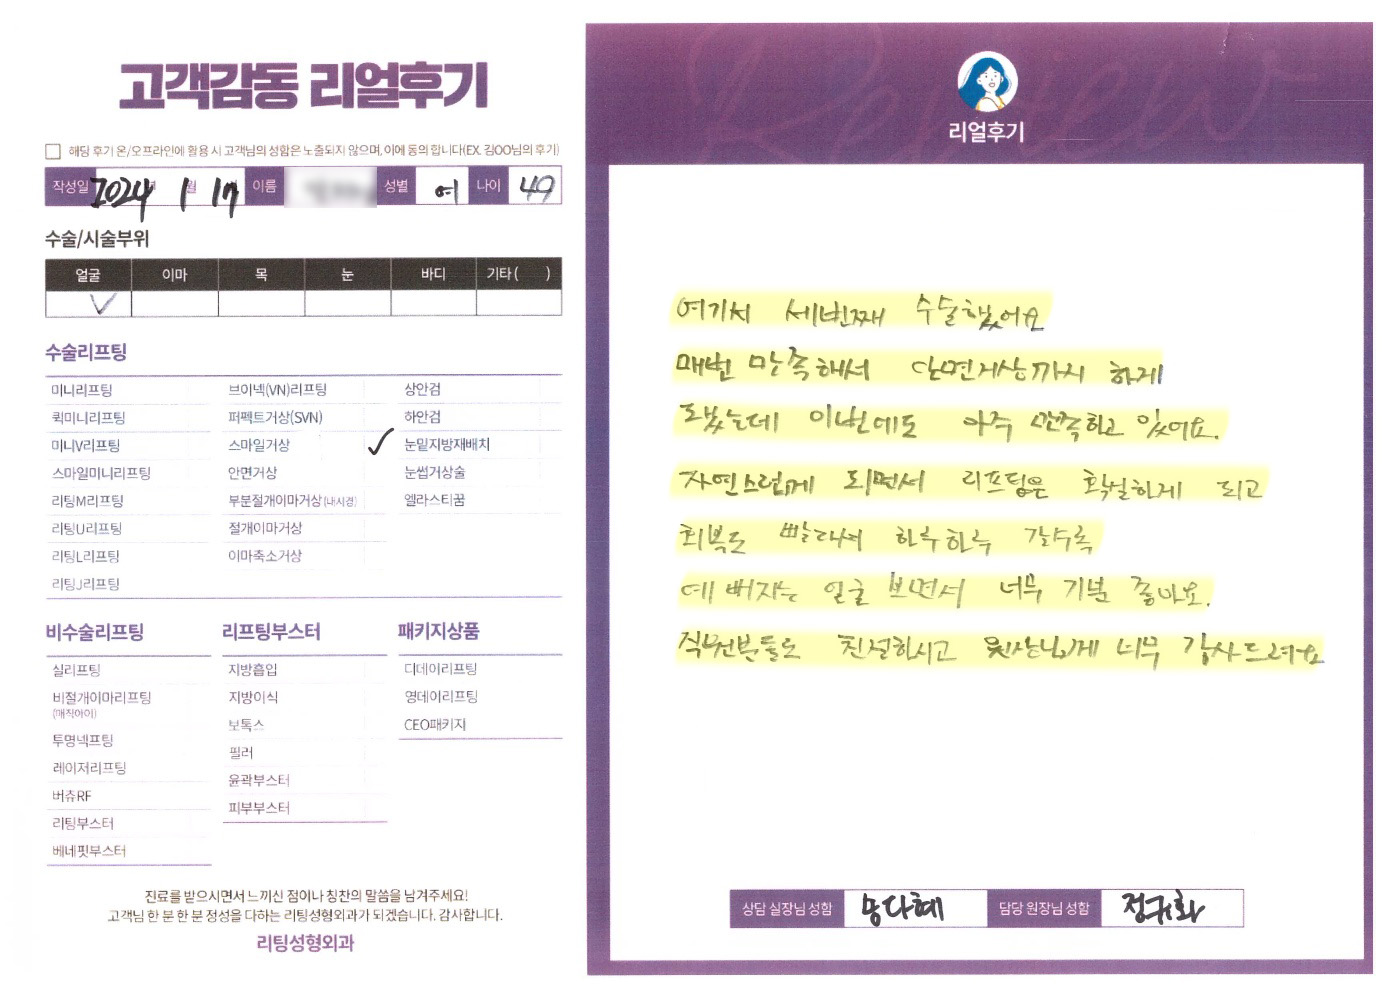 고객감동 리얼후기
해당 후기 온/오프라인에 활용 시 고객님의 성함은 노출되지 않으며, 이에 동의 합니다(EX. 김OO님의 후기)
작성일 2024 1 월 17 이름 성별 여 나이 49
수술/시술부위
얼굴 이마 목 눈 바디 기타 ( )
✓
수술리프팅
미니리프팅
퀵미니리프팅
미니V리프팅
스마일미니리프팅
리팅M리프팅
리팅U리프팅
리팅L리프팅
리팅J리프팅
브이넥(VN)리프팅
퍼펙트거상(SVN)
스마일거상 ✓
안면거상
부분절개이마거상(내시경)
절개이마거상
이마축소거상
상안검
하안검
눈밑지방재배치
눈썹거상술
엘라스티꿈
비수술리프팅
실리프팅
비절개이마리프팅
(매직아이)
투명넥프팅
레이저리프팅
버츄RF
리팅부스터
베네핏부스터
리프팅부스터
지방흡입
지방이식
보톡스
필러
윤곽부스터
피부부스터
패키지상품
디데이리프팅
영데이리프팅
CEO패키지
진료를 받으시면서 느끼신 점이나 칭찬의 말씀을 남겨주세요!
고객님 한 분 한 분 정성을 다하는 리팅성형외과가 되겠습니다. 감사합니다.
리팅성형외과
Review
리얼후기
여기서 세번째 수술했어요
매번 만족해서 안면거상까지 하게
됬는데 이번에도 아주 만족하고 있어요.
자연스럽게 되면서 리프팅은 확실하게 되고
회복도 빨라서 하루하루 갈수록
예뻐지는 얼굴 보면서 너무 기분 좋아요.
직원분들도 친절하시고 원장님께 너무 감사드려요
상담 실장님 성함 송다혜 담당 원장님 성함 정귀화